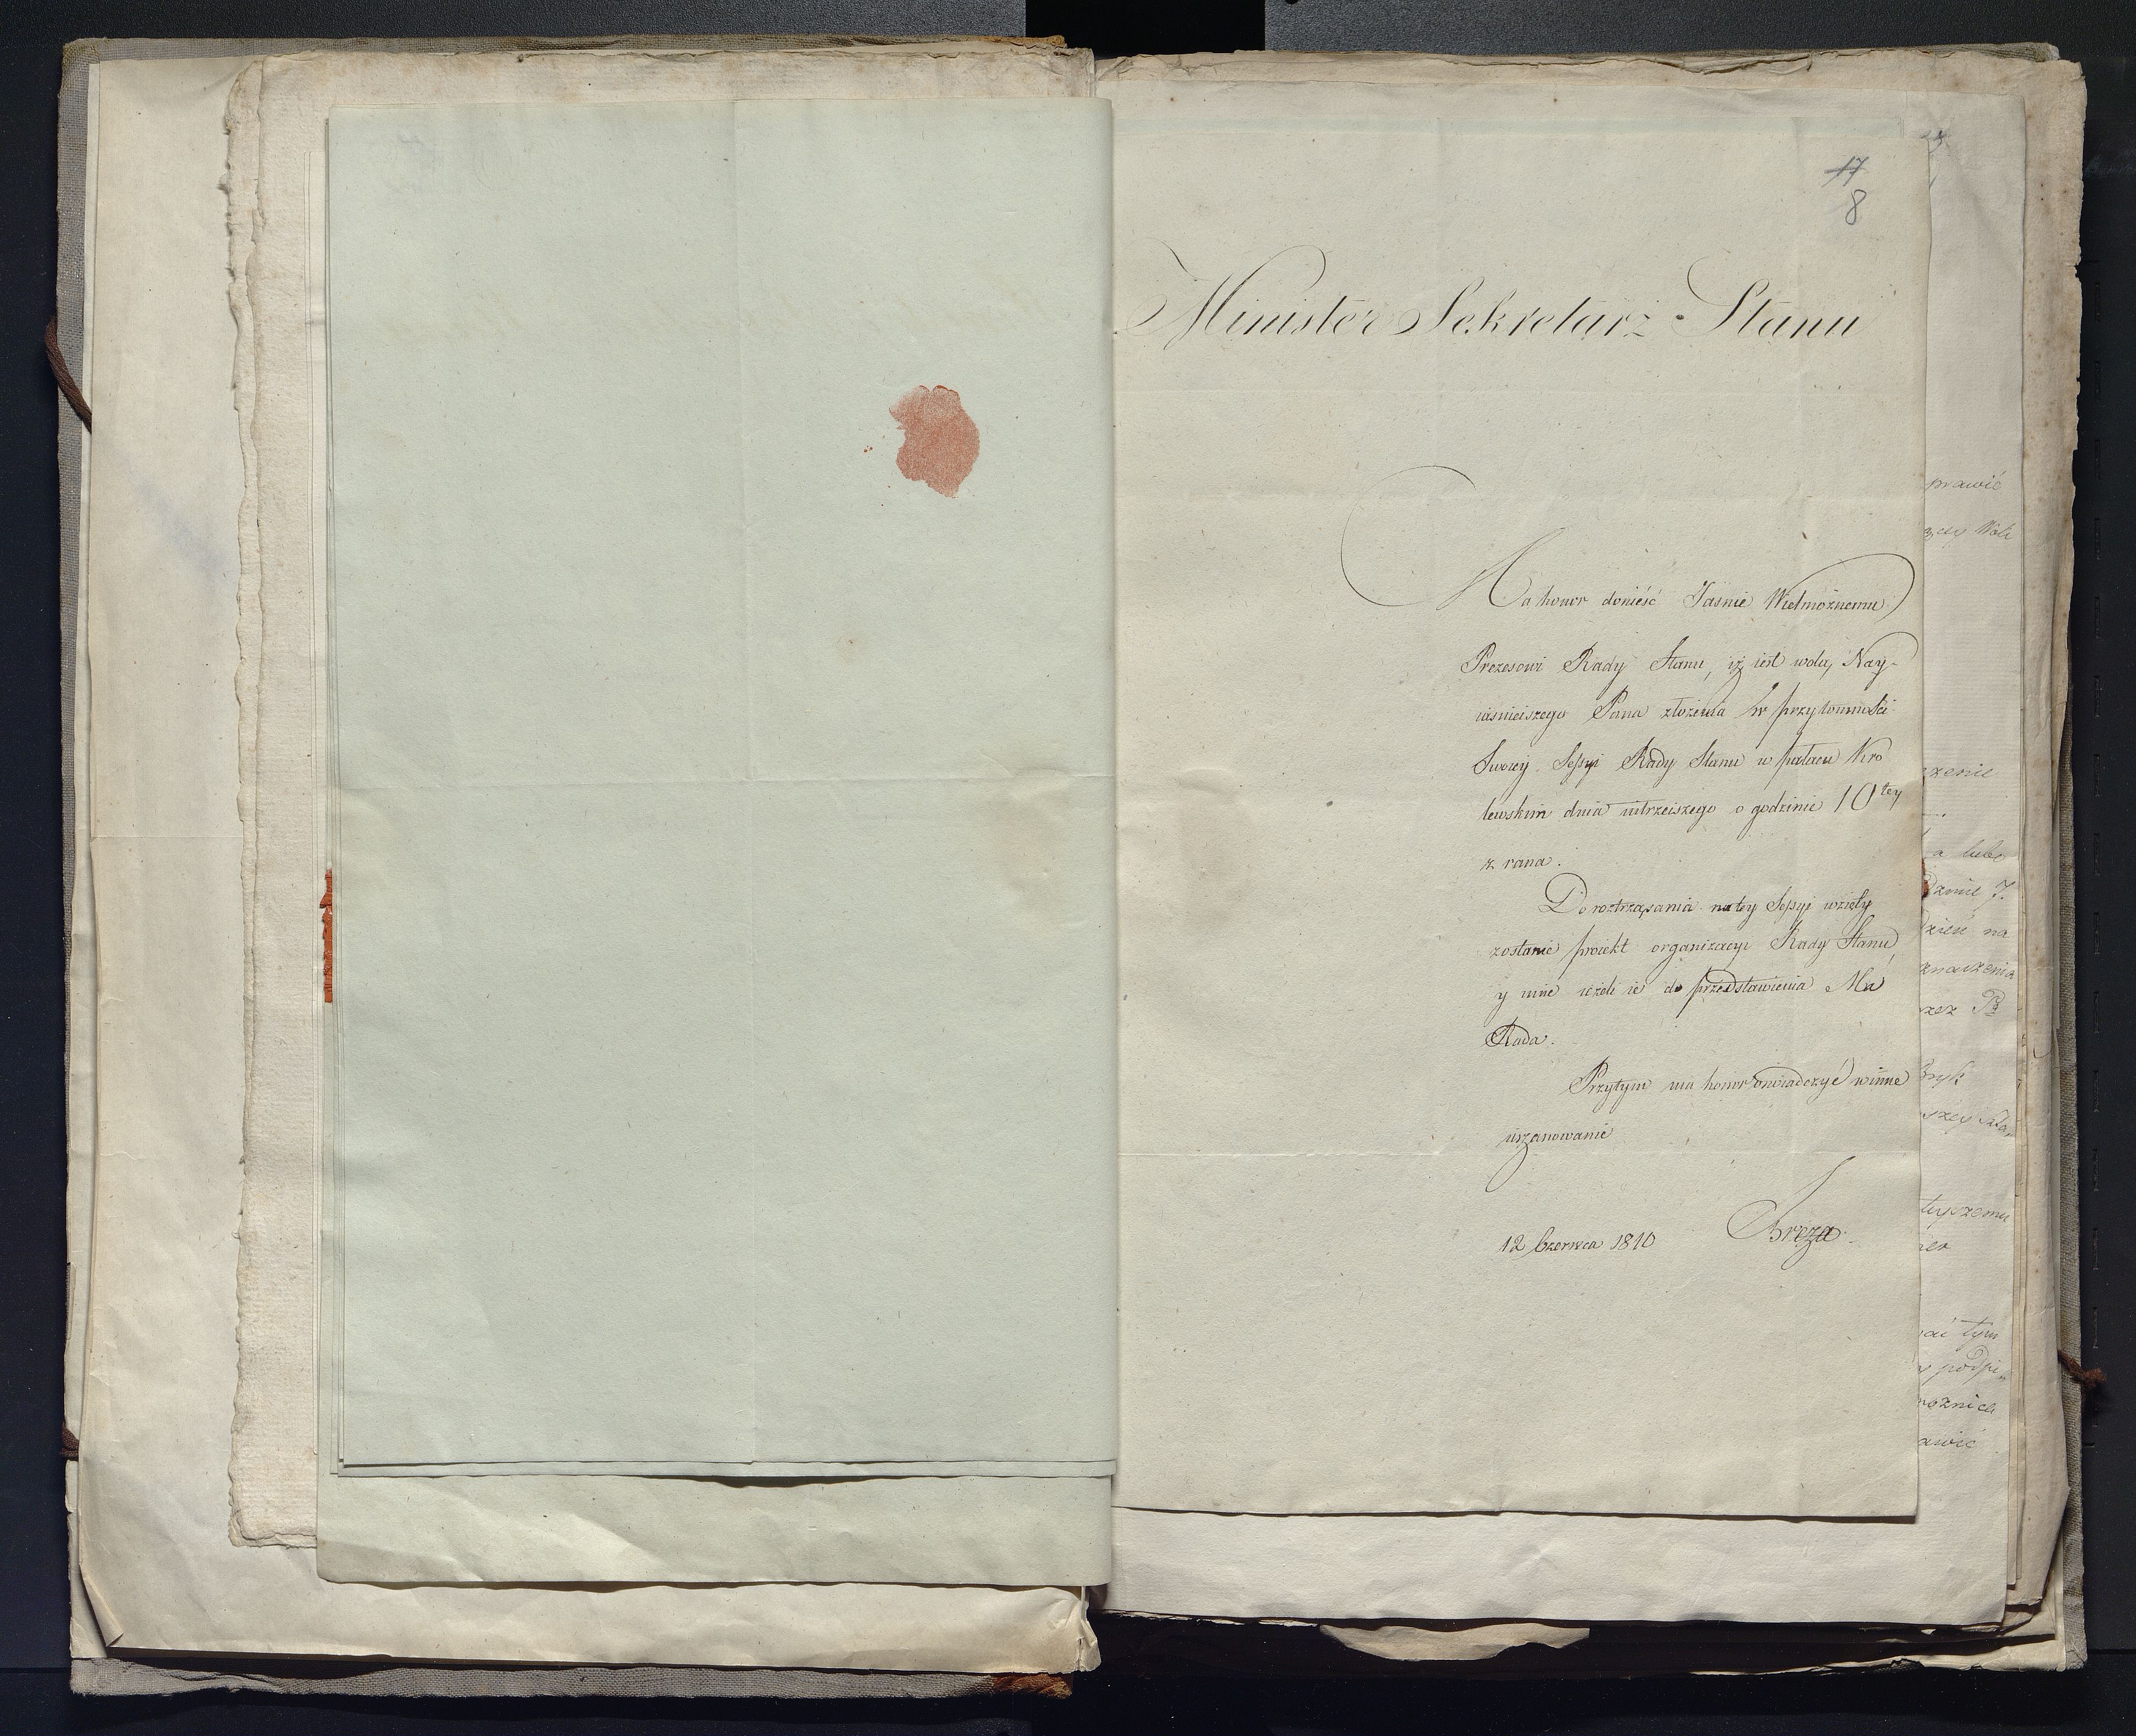 17
8
Minister Sekretarz Stanu
Ma honor donieść Jaśnie Wielmożnemu
Prezesowi Rady Stanu, iż iest wolą Nay-
iaśnieiszego Pana złożenia w przytomności
Swoiey Sessyi Rady Stanu w pałacu Kro
lewskim dnia iutrzeiszego o godzinie 10tey
z rana.
Do roztrząsania na tey Sessyi wzięty
zostanie proiekt organizacyi Rady Stanu,
y inne ieżeli ie do przedstawienia Ma
Rada.
Przytym ma honor oświadczyć winne
uszanowanie
12 Czerwca 1810 Breza
prawić
zenie
a lubo
dzień na
znaczenia
tym
podpi